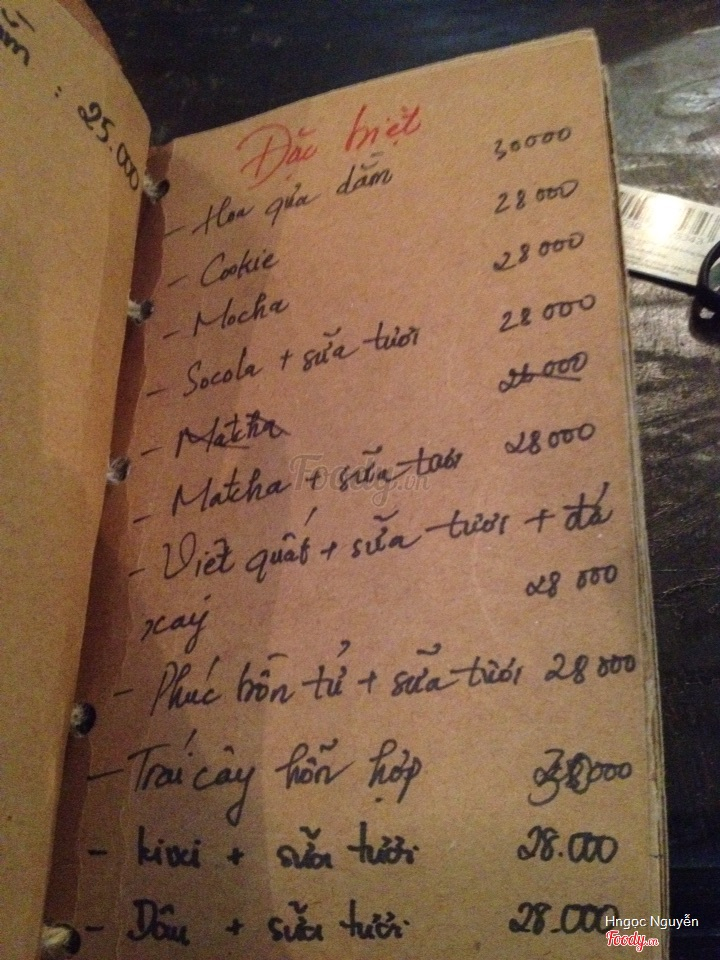 ằm : 25.000
Đặc biệt
- Hoa qủa dầm 30000
- Cookie 28000
- Mocha 28000
- Socola + sữa tươi 28000
- Matcha 26000
- Matcha + sữa tươi 28000
- Việt quất + sữa tươi + đá
xay 28000
- Phúc bồn tử + sữa tươi 28000
- Trái cây hỗn hợp 30000
- kiwi + sữa tươi 28.000
- Dâu + sữa tươi 28.000
Foody.vn
Hngoc Nguyễn
Foody.vn